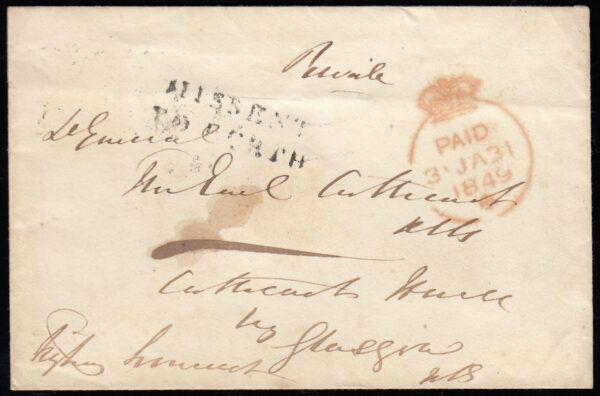 Private
MISSENT
TO PERTH
PAID
31 JA 31
1849
Lt General
The Earl Cathcart
KCB
Cathcart House
by Glasgow
NB
Fitzroy Somerset